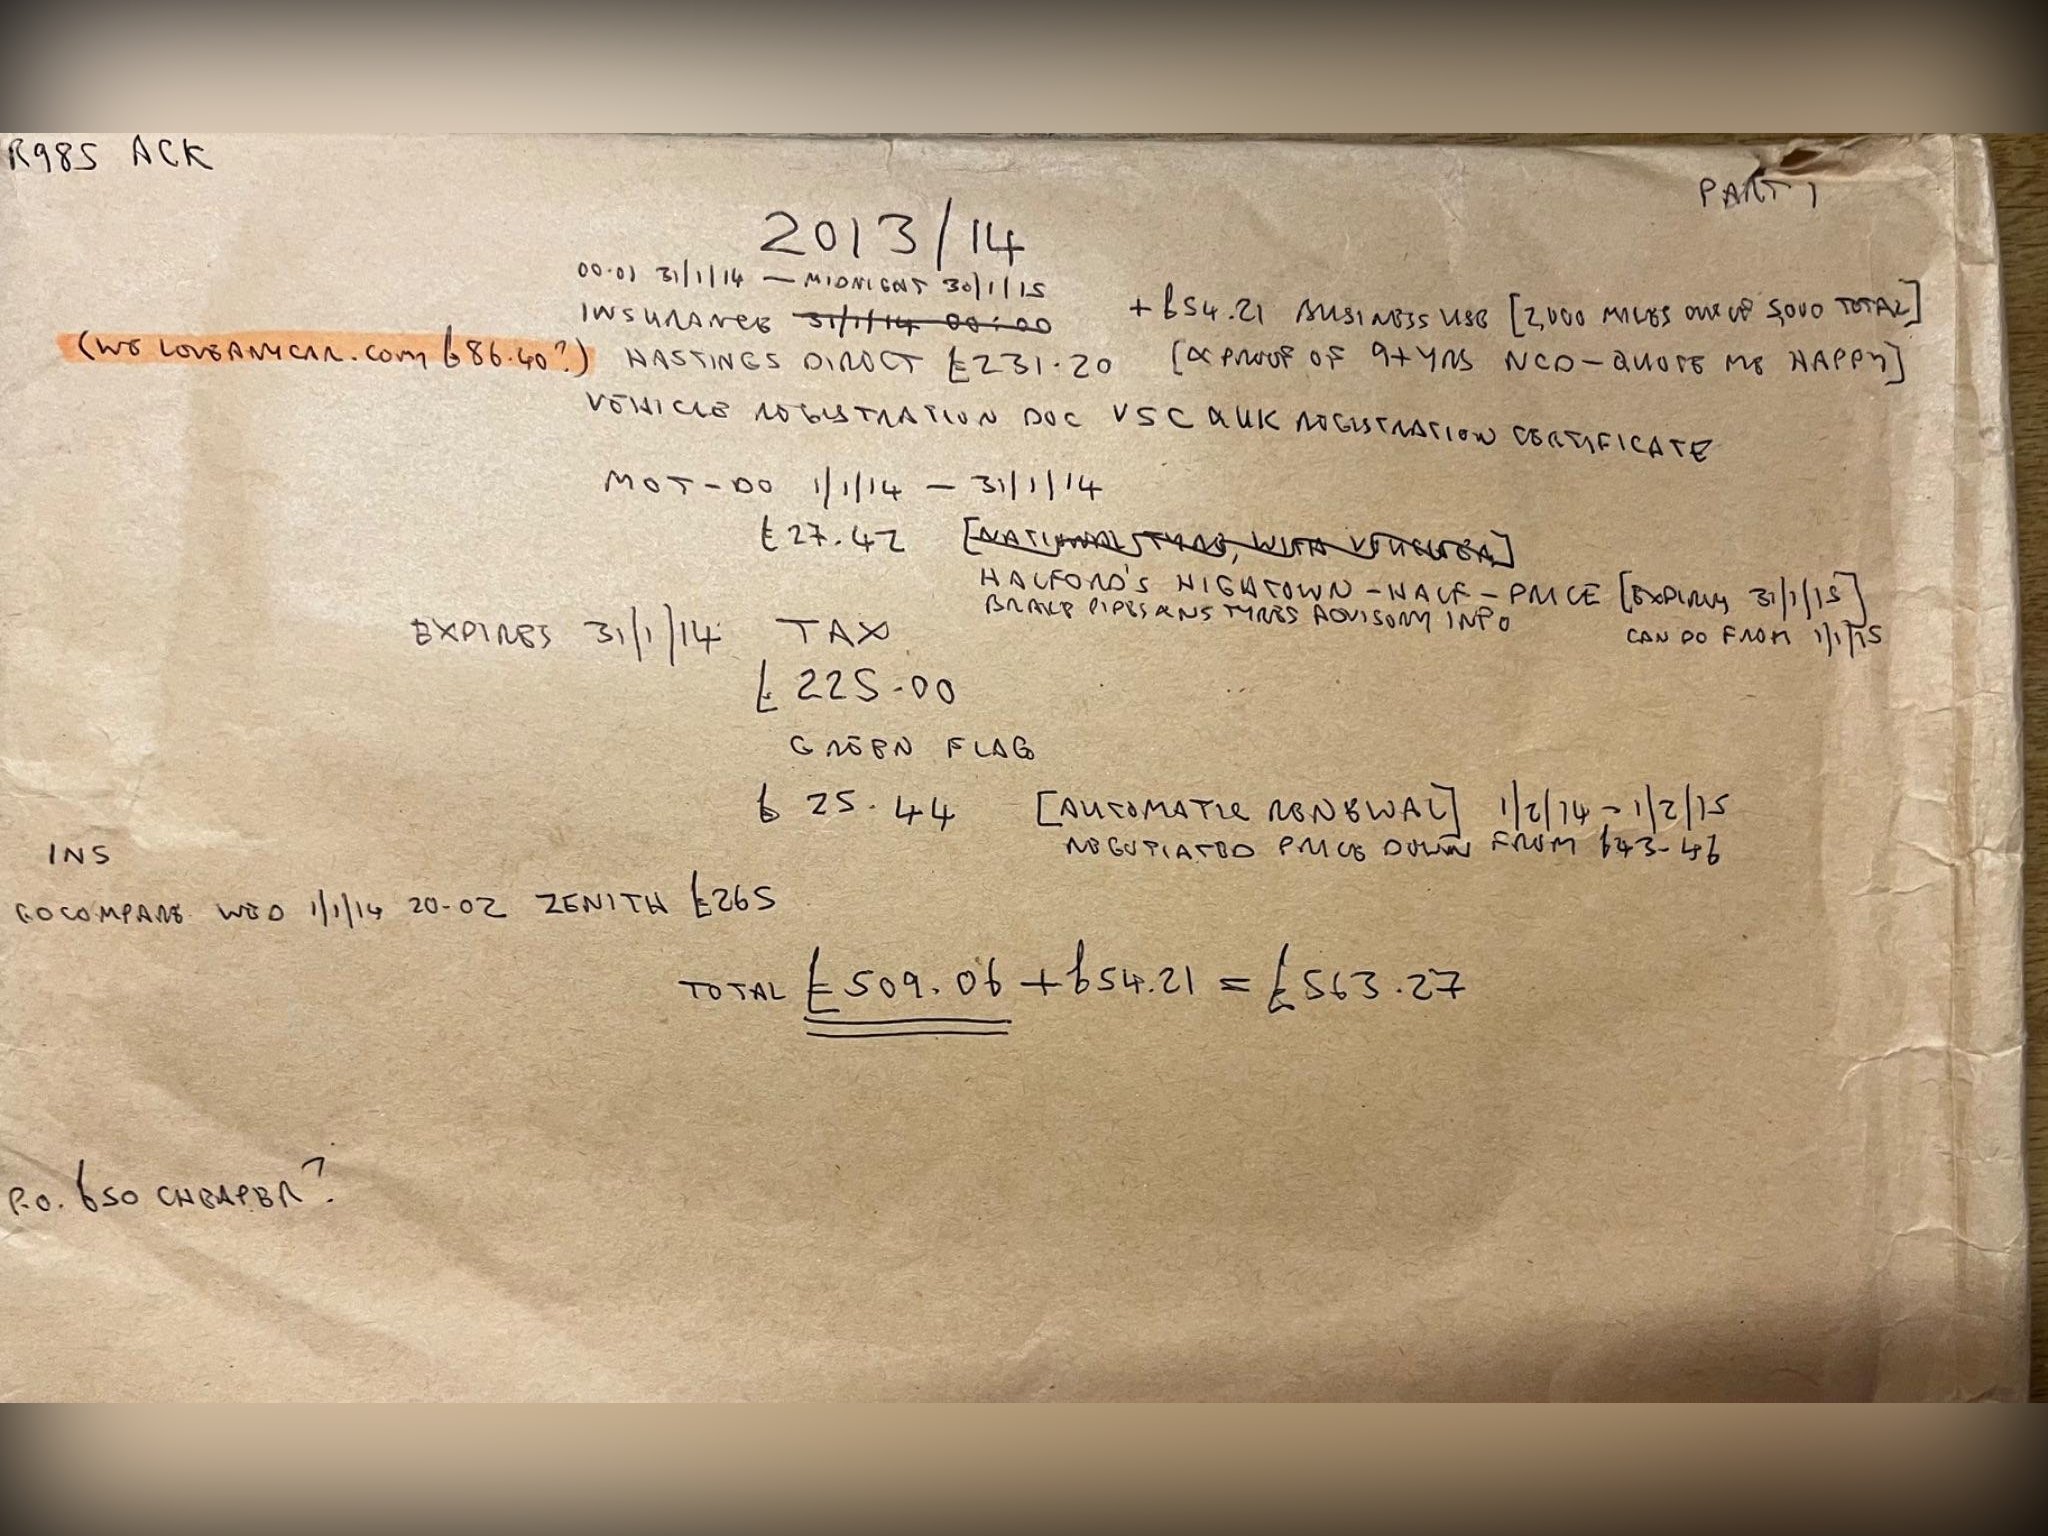 R985 ACK
PART 1
2013/14
00.01 31/1/14 — MIDNIGHT 30/1/15
INSURANCE 31/1/14 00:00
+ £54.21 BUSINESS USE [2,000 MILES OUT OF 5,000 TOTAL]
(WE LOVEANYCAR.COM £86.40?) HASTINGS DIRECT £231.20 [& PROOF OF 9+ YRS NCD - QUOTE ME HAPPY]
VEHICLE REGISTRATION DOC V5C & UK REGISTRATION CERTIFICATE
MOT - DO 1/1/14 — 31/1/14
£27.42 [NATIONAL TYRE, WITH VOUCHER]
HALFORD'S HIGHTOWN - HALF - PRICE [EXPIRY 31/1/15]
BRAKE PIPES & NS TYRES ADVISORY INFO
CAN DO FROM 1/1/15
EXPIRES 31/1/14 TAX
£225.00
GREEN FLAG
£25.44 [AUTOMATIC RENEWAL] 1/2/14 - 1/2/15
NEGOTIATED PRICE DOWN FROM £43-46
INS
GOCOMPARE WED 1/1/14 20-02 ZENITH £265
TOTAL £509.06 + £54.21 = £563.27
P.O. £50 CHEAPER?